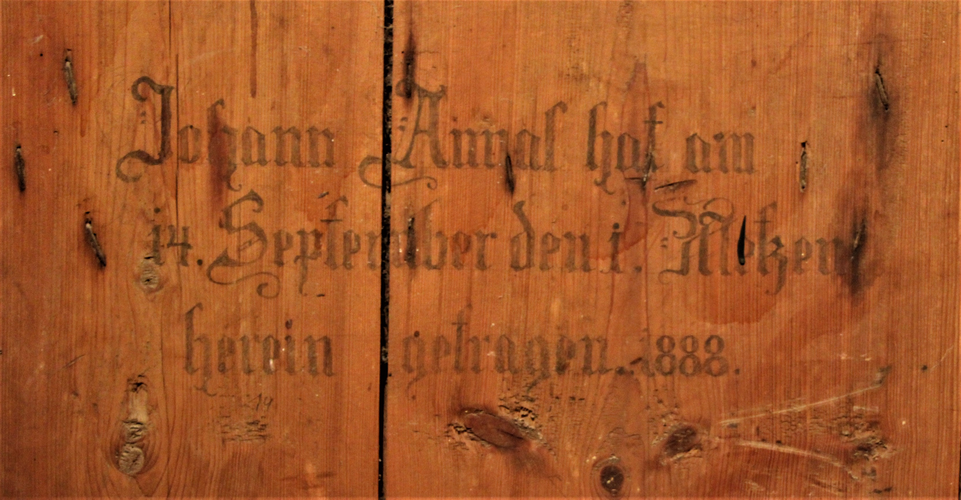 Johann hat am
14. September den 1. Metzen
herein getragen. 1888.